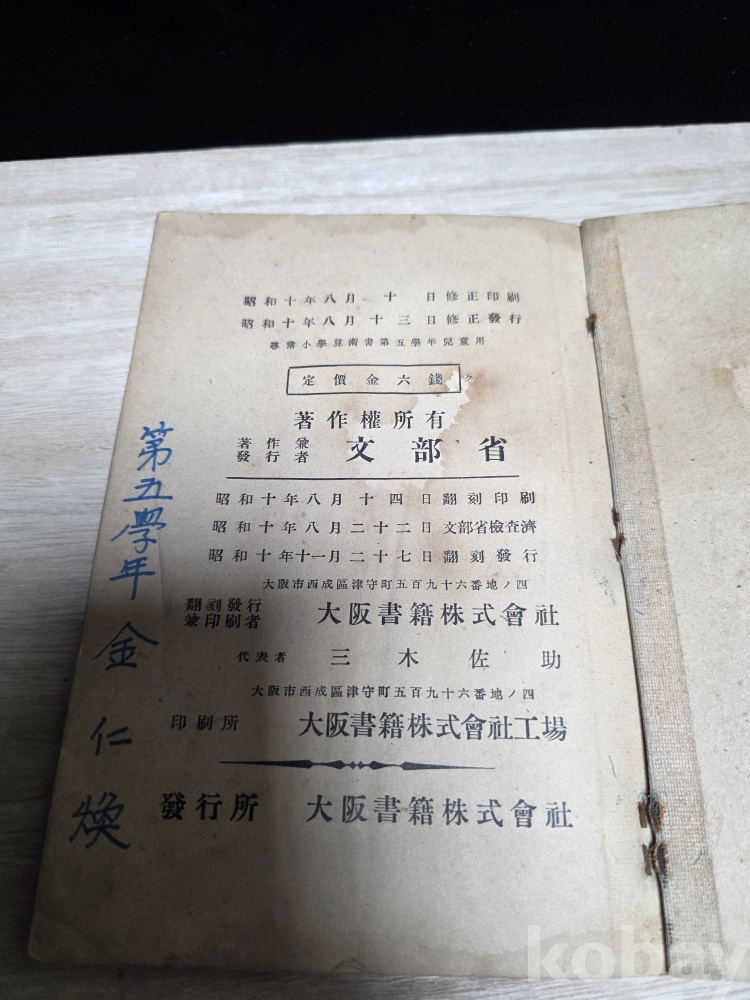 昭和十年八月十日修正印刷
昭和十年八月十三日修正發行
尋常小學算術書第五學年兒童用
定價金六錢
著作權所有
著作兼
發行者
文部省
昭和十年八月十四日翻刻印刷
昭和十年八月二十二日文部省檢査濟
昭和十年十一月二十七日翻刻發行
大阪市西成區津守町五百九十六番地ノ四
翻刻發行
兼印刷者
大阪書籍株式會社
代表者 三木佐助
大阪市西成區津守町五百九十六番地ノ四
印刷所 大阪書籍株式會社工場
發行所 大阪書籍株式會社
第五學年 金仁煥
kobay